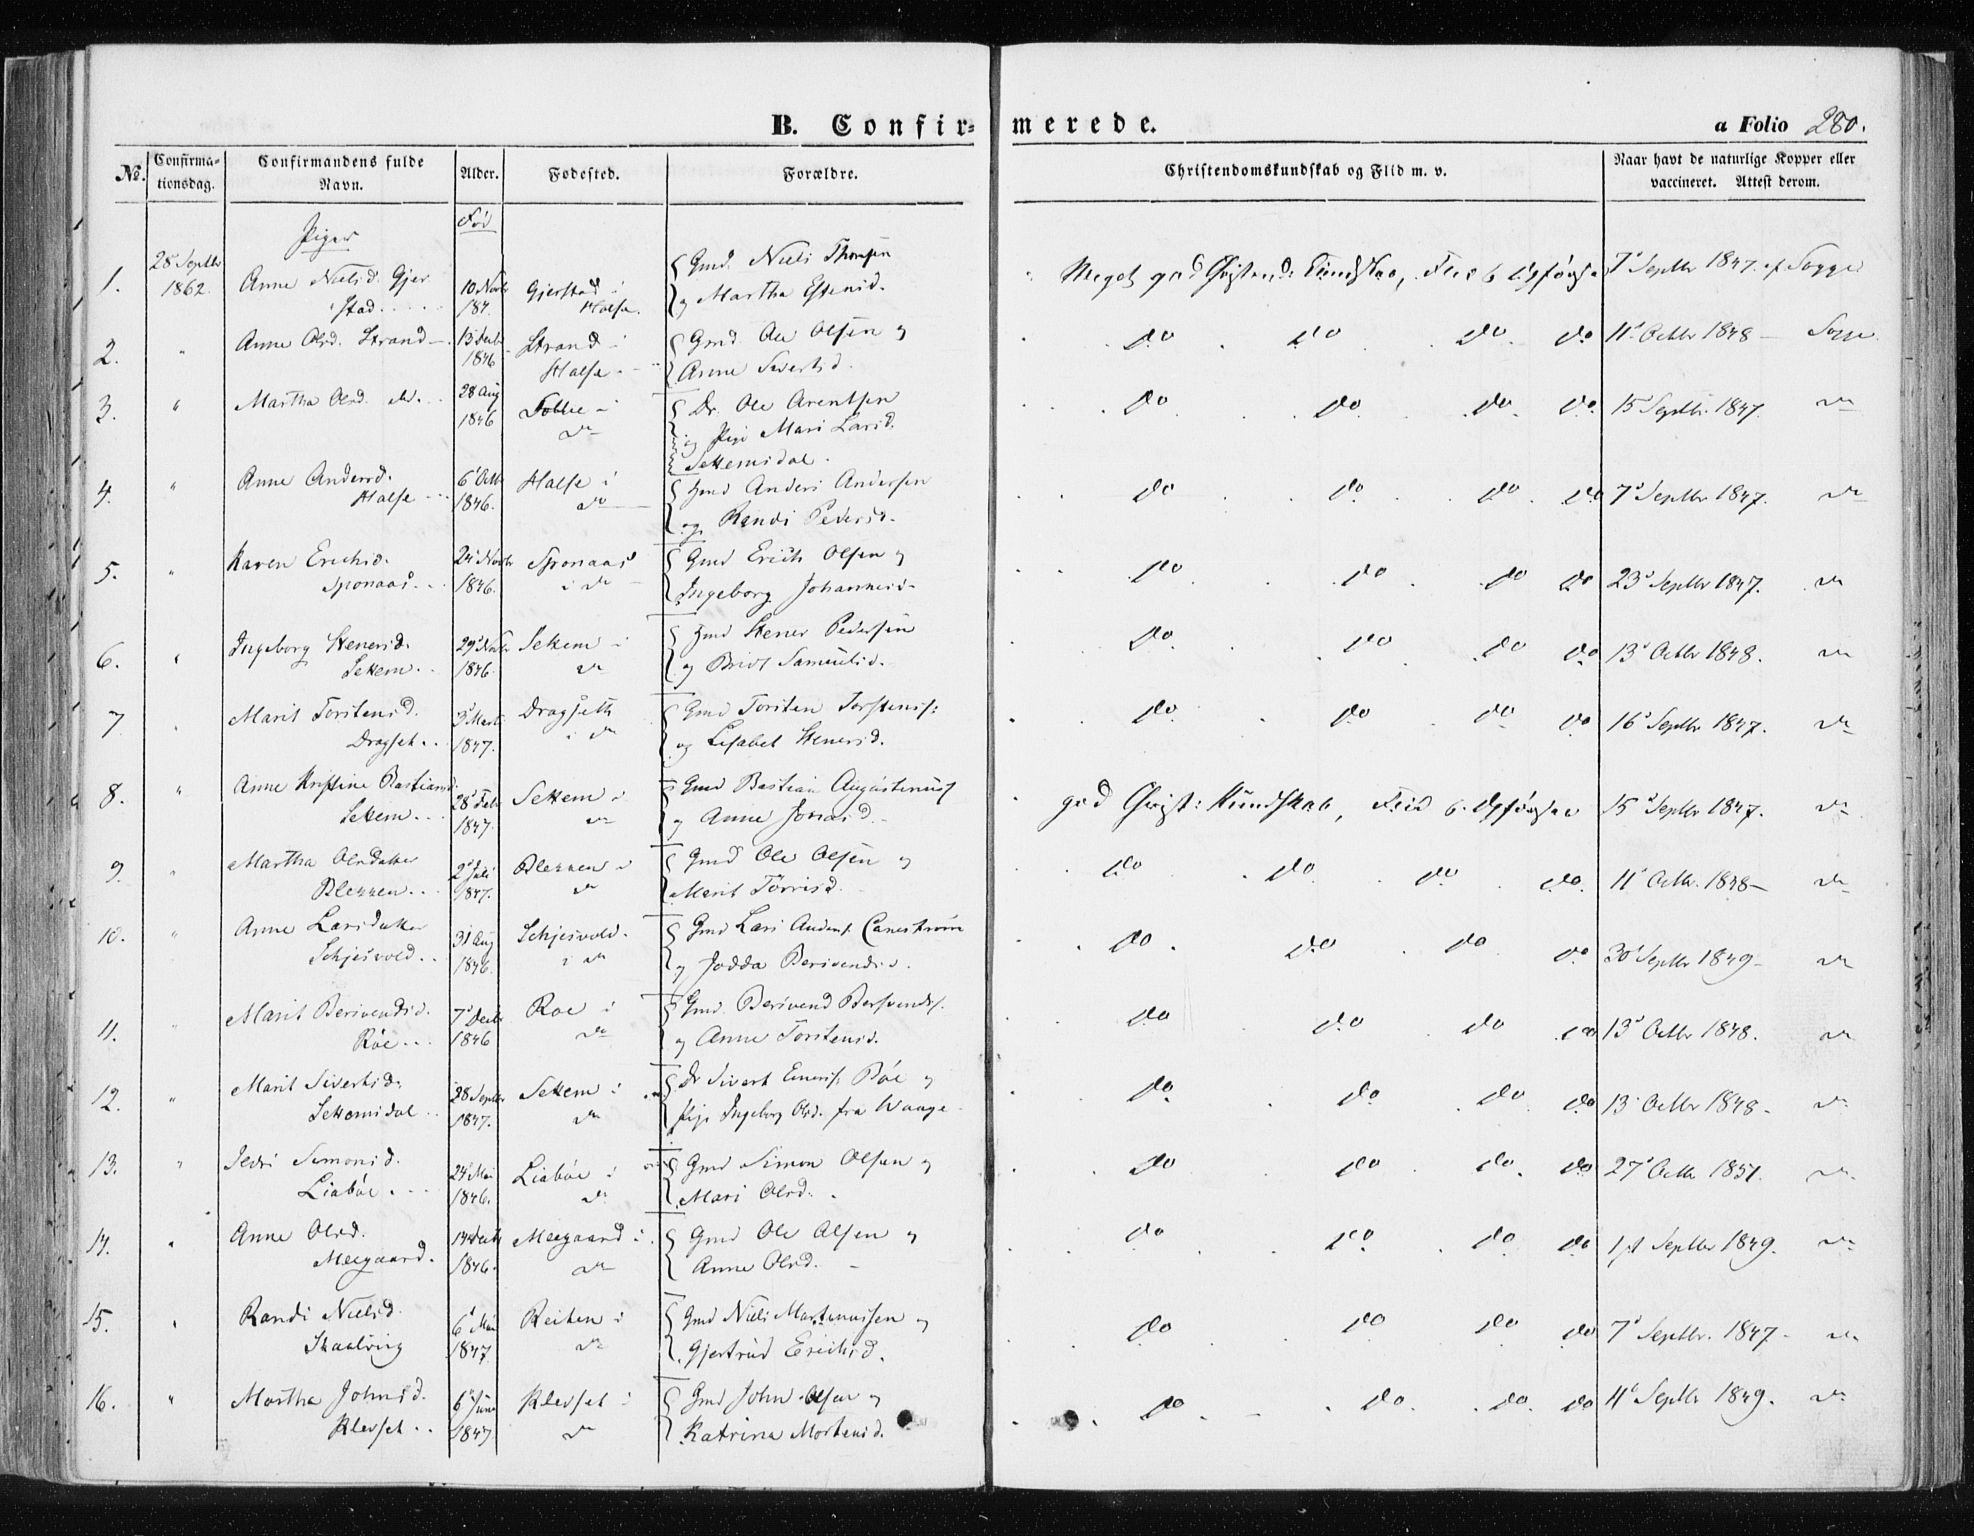 B. Confirmerede.
a Folio 280.
No. Confirmationsdag. Confirmandens fulde Navn. Alder. Fødested. Forældre. Christendomskundskab og Flid m. v. Naar havt de naturlige Kopper eller vaccineret. Attest derom.
Piger Fød
1. 28 Septbr 1862. Anne Nielsd. Gjerstad 10 Novbr 184 Gjerstad i Halse. Gmd. Niels Thomsen og Martha Estensd. Meget god Christend: Kundskab, Flid & Opførsel 7 Septbr 1847 af Sogge
2. " Anne Olsd. Strand 13 Decbr 1846 Strand i Halse Gmd. Ole Olsen og Anne Sivertsd. do do do do 11 Octbr 1848 Sogge
3. " Martha Olsd. 28 Aug 1846 i do Dr. Ole Arentsen og Pige Mari Larsd. Settemsdal. do do do do 15 Septbr. 1847. do
4. " Anne Andersd. Halse 6 Octb 1846. Halse i do Hmd Anders Andersen og Randi Pedersd. do do do do 7 Septbr 1847. do
5. " Karen Erichsd. Sponaas 24 Novbr 1846. Sponaas i do Gmd Erich Olsen og Ingeborg Johannesd. do do do do 23 Septbr 1847. do
6. " Ingeborg Stenersd. Settem 29 Novbr 1846. Settem i do Hmd Stener Pedersen og Brit Samuelsd. do do do do 13 Octbr 1848. do
7 " Marit Torstensd. Dragset 3 Marts 1847. Dragseth i do Gmd Torsten Torstens: og Lisabet Stenersd. do do do do 16 Septbr 1847. do
8. " Anne Kristine Bastiansd. Settem 28 Febr 1847. Settem i do Gmd Bastian Augustinus og Anne Jonasd. god Christ: Kundskab, Flid & Opførsel 15 Septbr 1847. do
9. " Martha Olsdatter Blekken 2 Juli 1847. Blekken i do Gmd Ole Olsen og Marit Torrisd. do do do do 11 Octbr. 1848 do
10. " Anne Larsdatter Schjesvold 31 Aug 1846. Schjesvold. i do Gmd Lars Anders. Canestrøm og Jodda Bersvendsd. do do do do 30 Septbr 1849 do
11. " Marit Bersvendsd. Røe 7 Decbr 1846 Roe i do Gmd. Bersvend Bersvends. og Anne Torstensd. do do do do 13 Octbr 1848. do
12. " Marit Sivertsd. Settemsdal 28 Septbr 1847. Settem i do Dr Sivert Bøe og Pige Ingeborg Olsd. fra Waage do do do do 13 Octbr 1848. do
13. " Simonsd. Liabøe 24 Mai 1846. Liabøe i do Gmd Simon Olsen og Mari Olsd. do do do do 27 Octbr 1851. do
14. " Anne Olsd. Meegaard. 14 Decbr 1846. Meegaard i do Gmd Ole Olsen og Anne Olsd. do do do do Septbr 1849. do
15. " Randi Nielsd. 6 Mai 1847 Reiten i do Gmd Niels Martinussen og Gjertrud Erichsd. do do do do 7 Septbr. 1847 do
16. " Martha Johnsd. Klevset 6 Juni 1847 Klevset i do Gmd John Olsen og Katrina Mortensd. do do do do 11 Septbr 1849. do